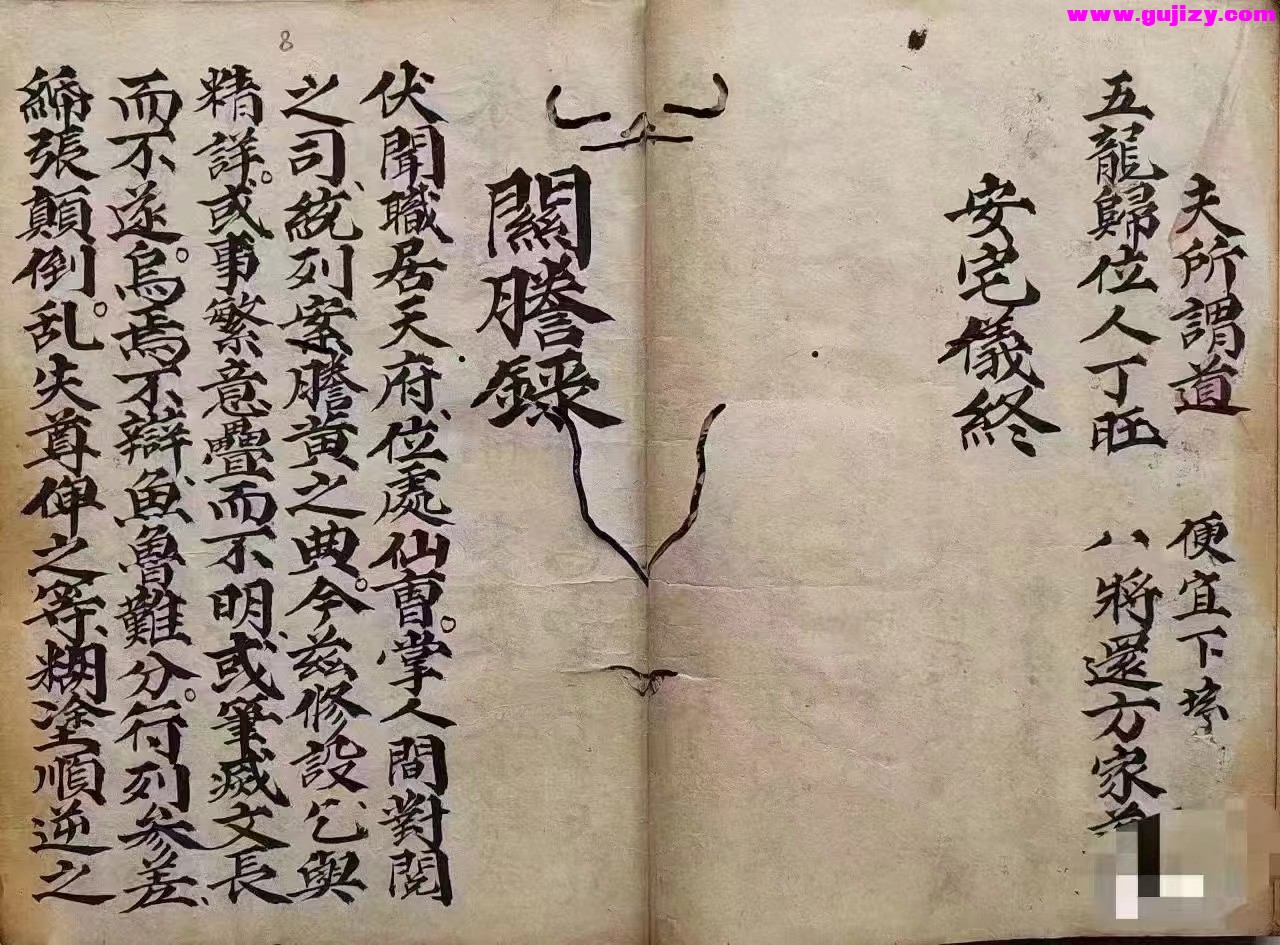 www.gujizy.com
夫所謂道 便宜下
五龍歸位人丁旺 八將還方家
安宅儀終
8
關謄錄
伏聞職居天府位處仙曹。掌人間對閱
之司統列案謄黄之典。今兹修設乞與
精詳。或事繁意疊而不明或筆滅文長
而不遂。烏焉不辯魚魯難分。行列參差
締張顛倒。乱失尊俾之等糊塗順逆之